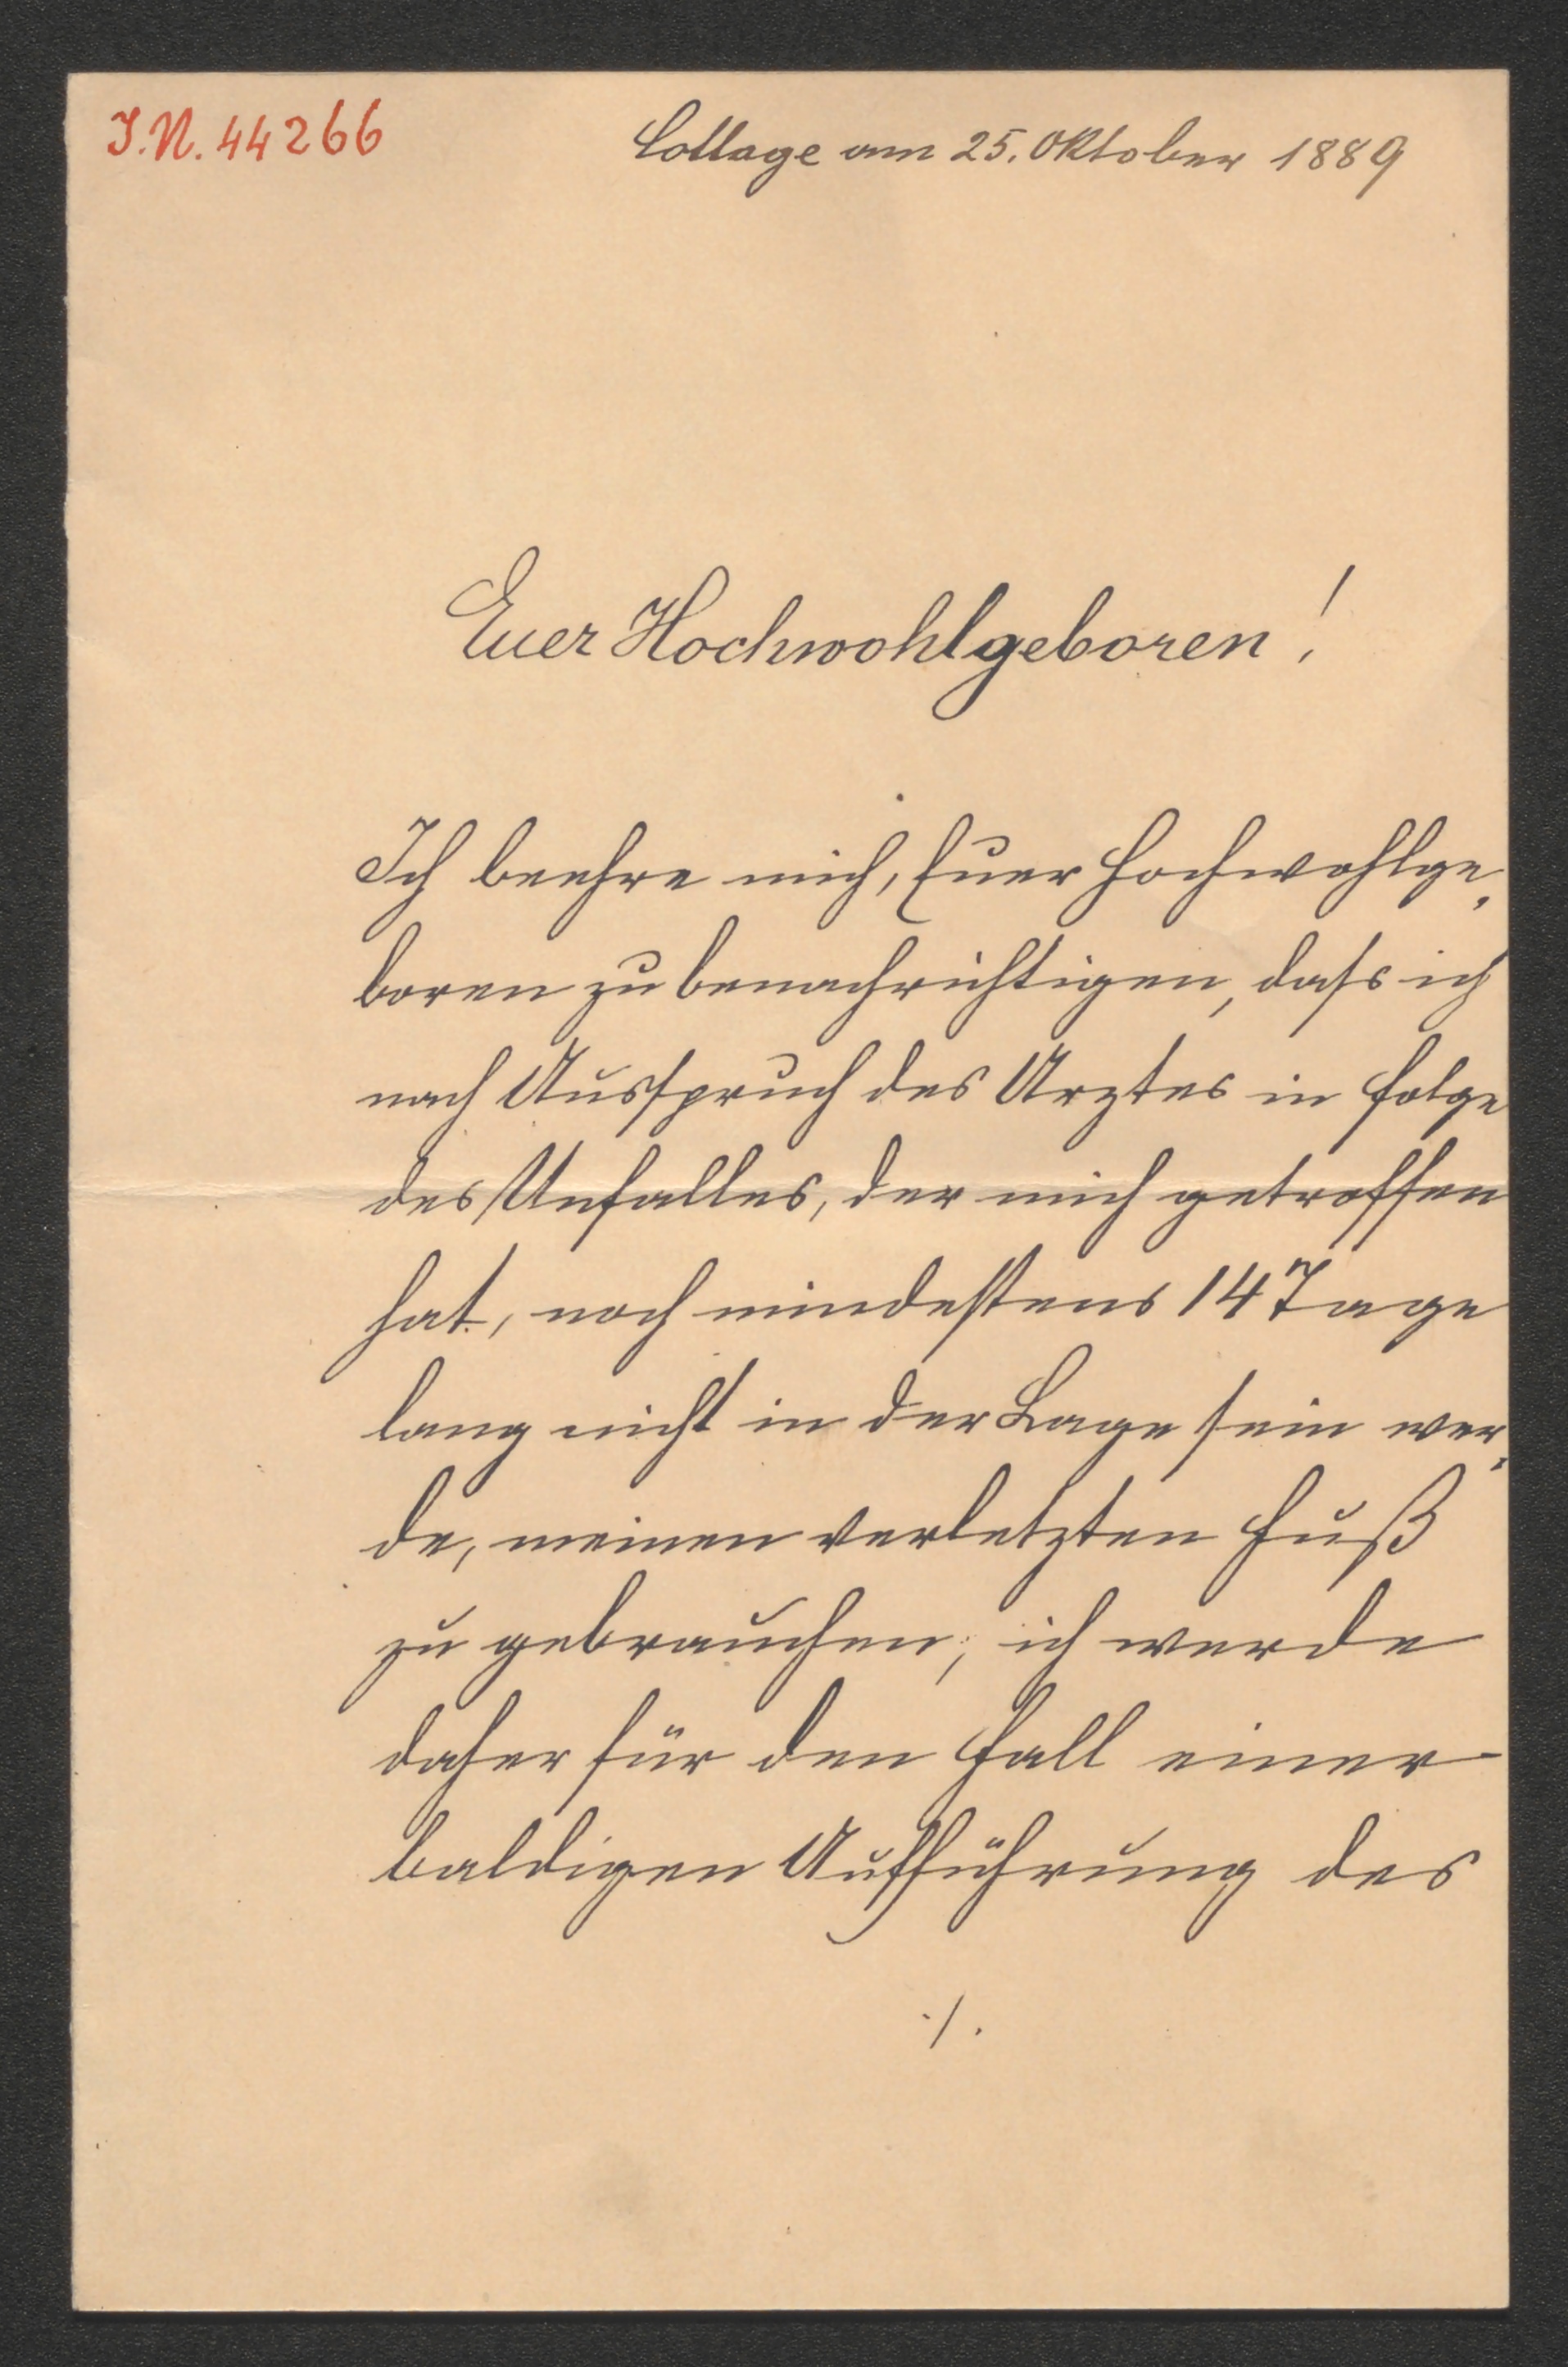 J.N. 44266
Cottage am 25. Oktober 1889
Euer Hochwohlgeboren!
Ich beehre mich, Euer Hochwohlge„
boren zu benachrichtigen, dass ich
nach Ausspruch des Arztes in Folge
des Unfalles, der mich getroffen
hat, noch mindestens 14 Tage
lang nicht in der Lage sein wer„
de, meinen verletzten Fuß
zu gebrauchen; ich werde
daher für den Fall einer
baldigen Aufführung des
./.